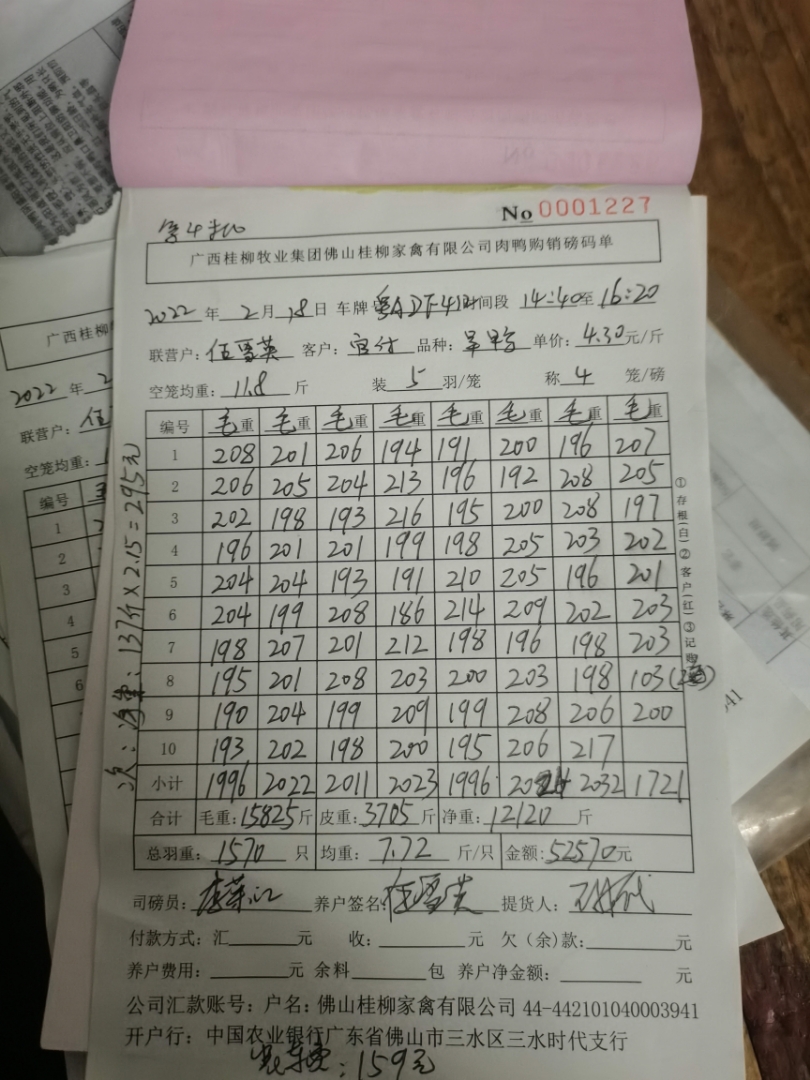 No 0001227
广西桂柳牧业集团佛山桂柳家禽有限公司肉鸭购销磅码单
2022 年 2 月 18 日 车牌 粤ADF41 时间段 14:40 至 16:20
联营户: 伍 英 客户: 官付 品种: 单价: 4.30 元/斤
空笼均重: 11.8 斤 装 5 羽/笼 称 4 笼/磅
编号 毛重 毛重 毛重 毛重 毛重 毛重 毛重 毛重
1 208 201 206 194 191 200 196 207
2 206 205 204 213 196 192 208 205
3 202 198 193 216 195 200 208 197
4 196 201 201 199 198 205 203 202
5 204 204 193 191 210 205 196 201
6 204 199 208 186 214 209 202 203
7 198 207 201 212 198 196 198 203
8 195 201 208 203 200 203 198 103
9 190 204 199 209 199 208 206 200
10 193 202 198 200 195 206 217
小计 1996 2022 2011 2023 1996 2024 2032 1721
合计 毛重: 15825 斤 皮重: 3705 斤 净重: 12120 斤
总羽重: 1570 只 均重: 7.72 斤/只 金额: 52570 元
司磅员: 养户签名: 提货人:
付款方式: 汇 元 收: 元 欠(余)款: 元
养户费用: 元 余料 包 养户净金额: 元
公司汇款账号: 户名: 佛山桂柳家禽有限公司 44-442101040003941
开户行: 中国农业银行广东省佛山市三水区三水时代支行
: 159元
次: 净重: 137斤×2.15=295元
①存根(白)②客户(红)③记
广西桂柳
2022 年 2
联营户: 伍
空笼均重:
编号
1
2
3
4
5
6